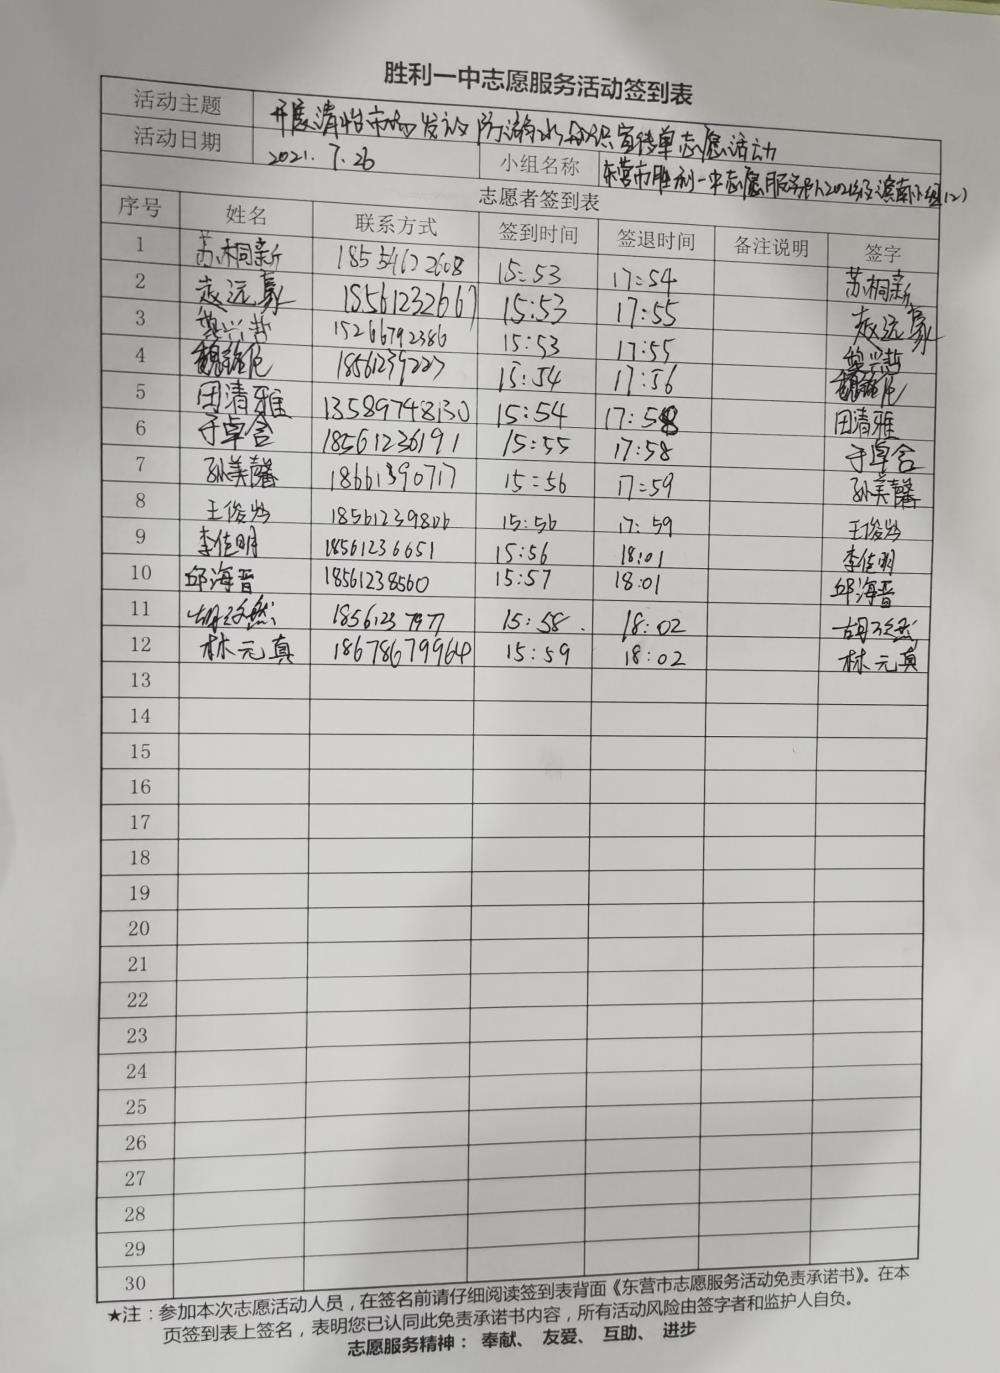 胜利一中志愿服务活动签到表
活动主题 开展清怡市场发放防溺水知识宣传单志愿活动
活动日期 2021.7.26 小组名称 东营市胜利一中志愿服务队2021级滨南小组(2)
志愿者签到表
序号 姓名 联系方式 签到时间 签退时间 备注说明 签字
1 苏桐新 18554622608 15:53 17:54 苏桐新
2 赵远豪 18561232667 15:53 17:55 赵远豪
3 兴哲 15266792386 15:53 17:55 兴哲
4 魏 18561239227 15:54 17:56 魏
5 田清雅 13589748130 15:54 17:58 田清雅
6 于卓含 18561236191 15:55 17:58 于卓含
7 孙美馨 18661390717 15:56 17:59 孙美馨
8 王俊 18561239806 15:56 17:59 王俊
9 李佳明 18561236651 15:56 18:01 李佳明
10 邱海晋 18561238560 15:57 18:01 邱海晋
11 胡然 18561237977 15:58 18:02 胡然
12 林元真 18678679964 15:59 18:02 林元真
13
14
15
16
17
18
19
20
21
22
23
24
25
26
27
28
29
30
★注：参加本次志愿活动人员，在签名前请仔细阅读签到表背面《东营市志愿服务活动免责承诺书》。在本
页签到表上签名，表明您已认同此免责承诺书内容，所有活动风险由签字者和监护人自负。
志愿服务精神： 奉献、 友爱、 互助、 进步